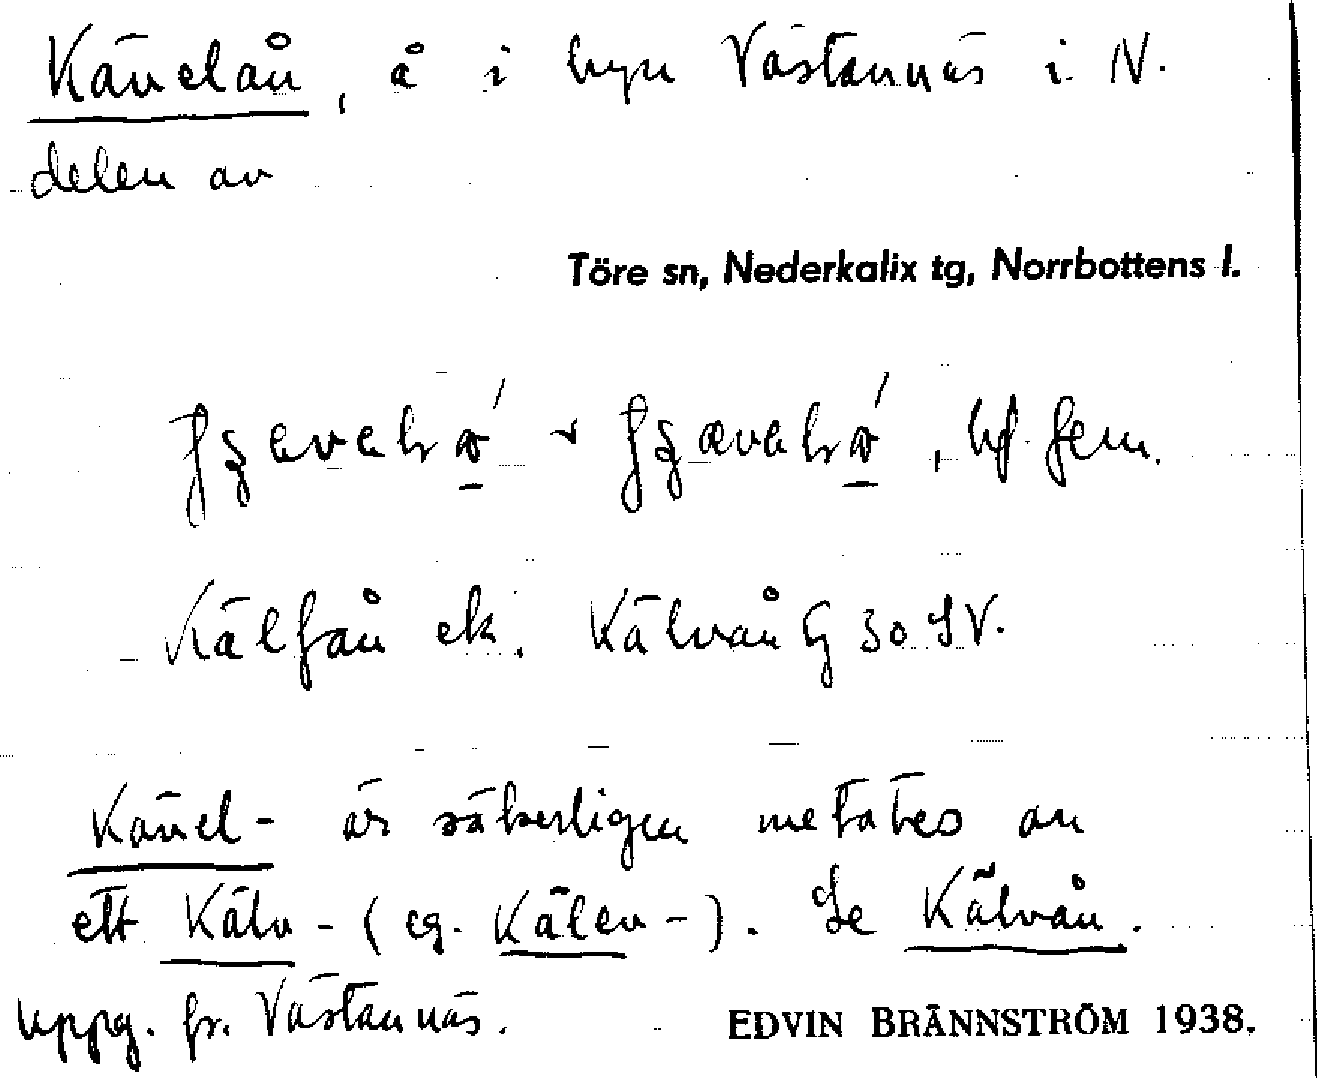 Kävelån, å i byn Västannäs i N.
delen av
Töre sn, Nederkalix tg, Norrbottens l.
, bf. fem.
Kälfån ek. Kälvån G 30 SV.
Kävel- är säkerligen metates av
ett Kälv- (eg. Kälev-). Se Kälvån.
Uppg. fr. Västannäs.
EDVIN BRÄNNSTRÖM 1938.